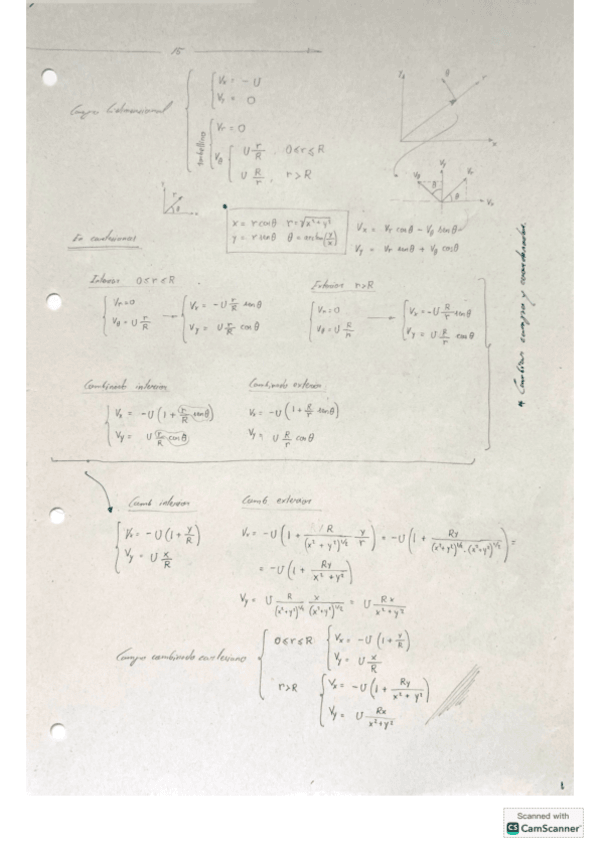 15
Campo bidimensional
Vx = - U
Vy = 0
torbellino
Vr = 0
Vθ
U r/R , 0≤r≤R
U R/r , r>R
x = r cosθ r = √x²+y²
y = r senθ θ = arctan(y/x)
Vx = Vr cosθ - Vθ senθ
Vy = Vr senθ + Vθ cosθ
En cartesianas
Interior 0≤r≤R
Vr=0
Vθ = U r/R
→
Vx = -U r/R senθ
Vy = U r/R cosθ
Exterior r>R
Vr=0
Vθ = U R/r
→
Vx = -U R/r senθ
Vy = U R/r cosθ
* Cambiar campo y coordenadas
Combinado interior
Vx = -U (1 + r/R senθ)
Vy = U r/R cosθ
Combinado exterior
Vx = -U (1 + R/r senθ)
Vy = U R/r cosθ
Comb interior
Vx = -U (1 + y/R)
Vy = U x/R
Comb exterior
Vx = -U (1 + R/(x² + y²)^1/2 y/r) = -U (1 + Ry/(x²+y²)^1/2·(x²+y²)^1/2) =
= -U (1 + Ry/x² + y²)
Vy = U R/(x²+y²)^1/2 x/(x²+y²)^1/2 = U Rx/x²+y²
Campo combinado cartesiano
0≤r≤R
Vx = -U (1 + y/R)
Vy = U x/R
r>R
Vx = -U (1 + Ry/x² + y²)
Vy = U Rx/x²+y²
Scanned with
CS CamScanner